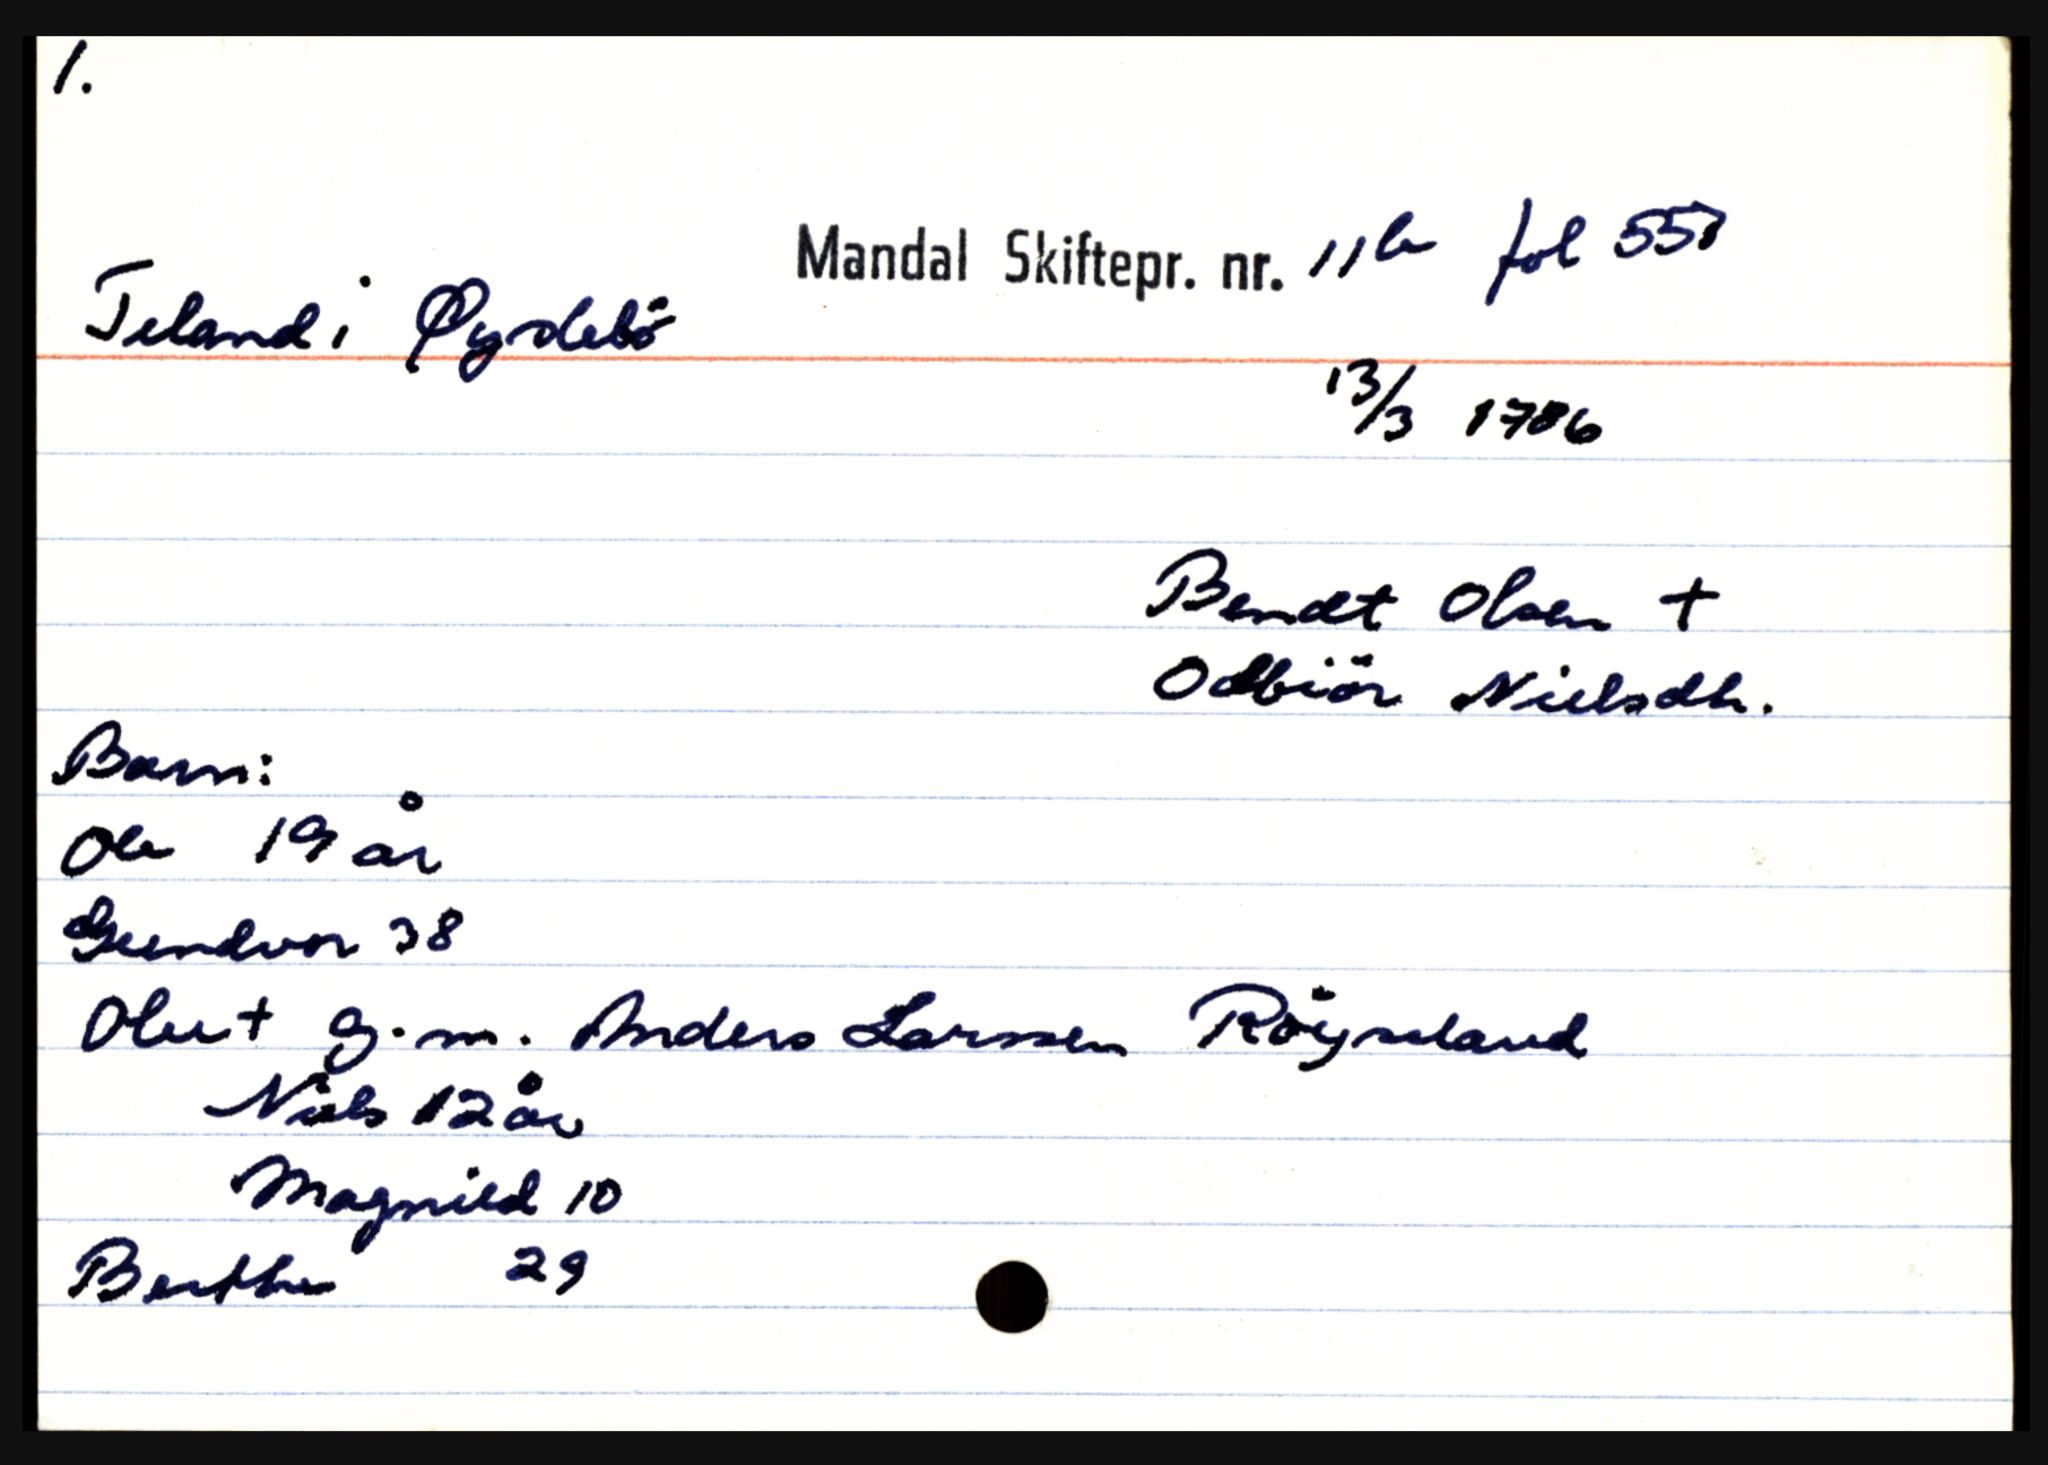 1.
Mandal Skiftepr. nr. 11b fol 551
Teland i Øydebö
13/3 1786
Bendt Olsen +
Odbiör Nielsdtr.
Barn:
Ole 19 år
Gundvor 38
Olu+ g.m. Anders Larssen Röyseland
Niels 12 år
Magnild 10
Berthe 29